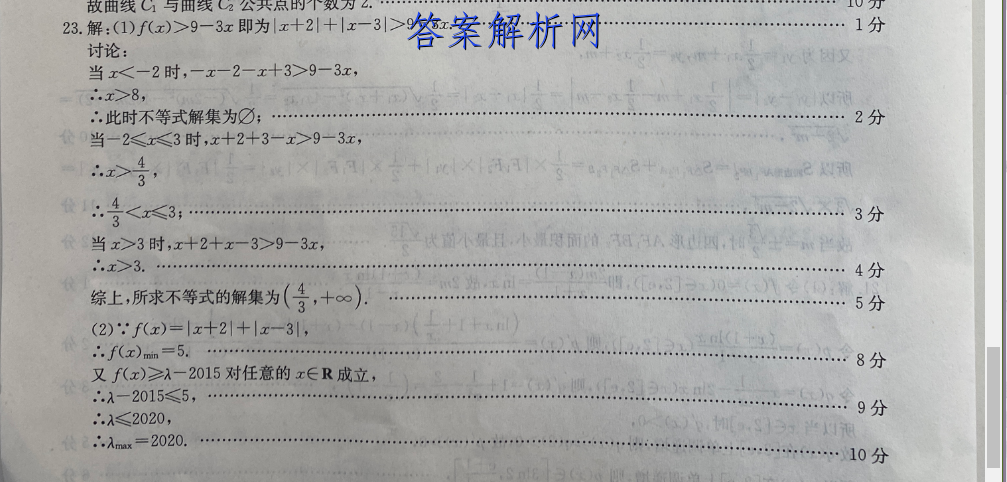 故曲线C₁与曲线C₂公共点的个数为2. …… 10分
23.解:(1)f(x)>9-3x即为|x+2|+|x-3|>9-3x. …… 1分
答案解析网
讨论:
当x<-2时,-x-2-x+3>9-3x,
∴x>8,
∴此时不等式解集为∅; …… 2分
当-2≤x≤3时,x+2+3-x>9-3x,
∴x>4/3,
∴4/3<x≤3; …… 3分
当x>3时,x+2+x-3>9-3x,
∴x>3. …… 4分
综上,所求不等式的解集为(4/3,+∞). …… 5分
(2)∵f(x)=|x+2|+|x-3|,
∴f(x)min=5. …… 8分
又f(x)≥λ-2015对任意的x∈R成立,
∴λ-2015≤5, …… 9分
∴λ≤2020,
∴λmax=2020. …… 10分